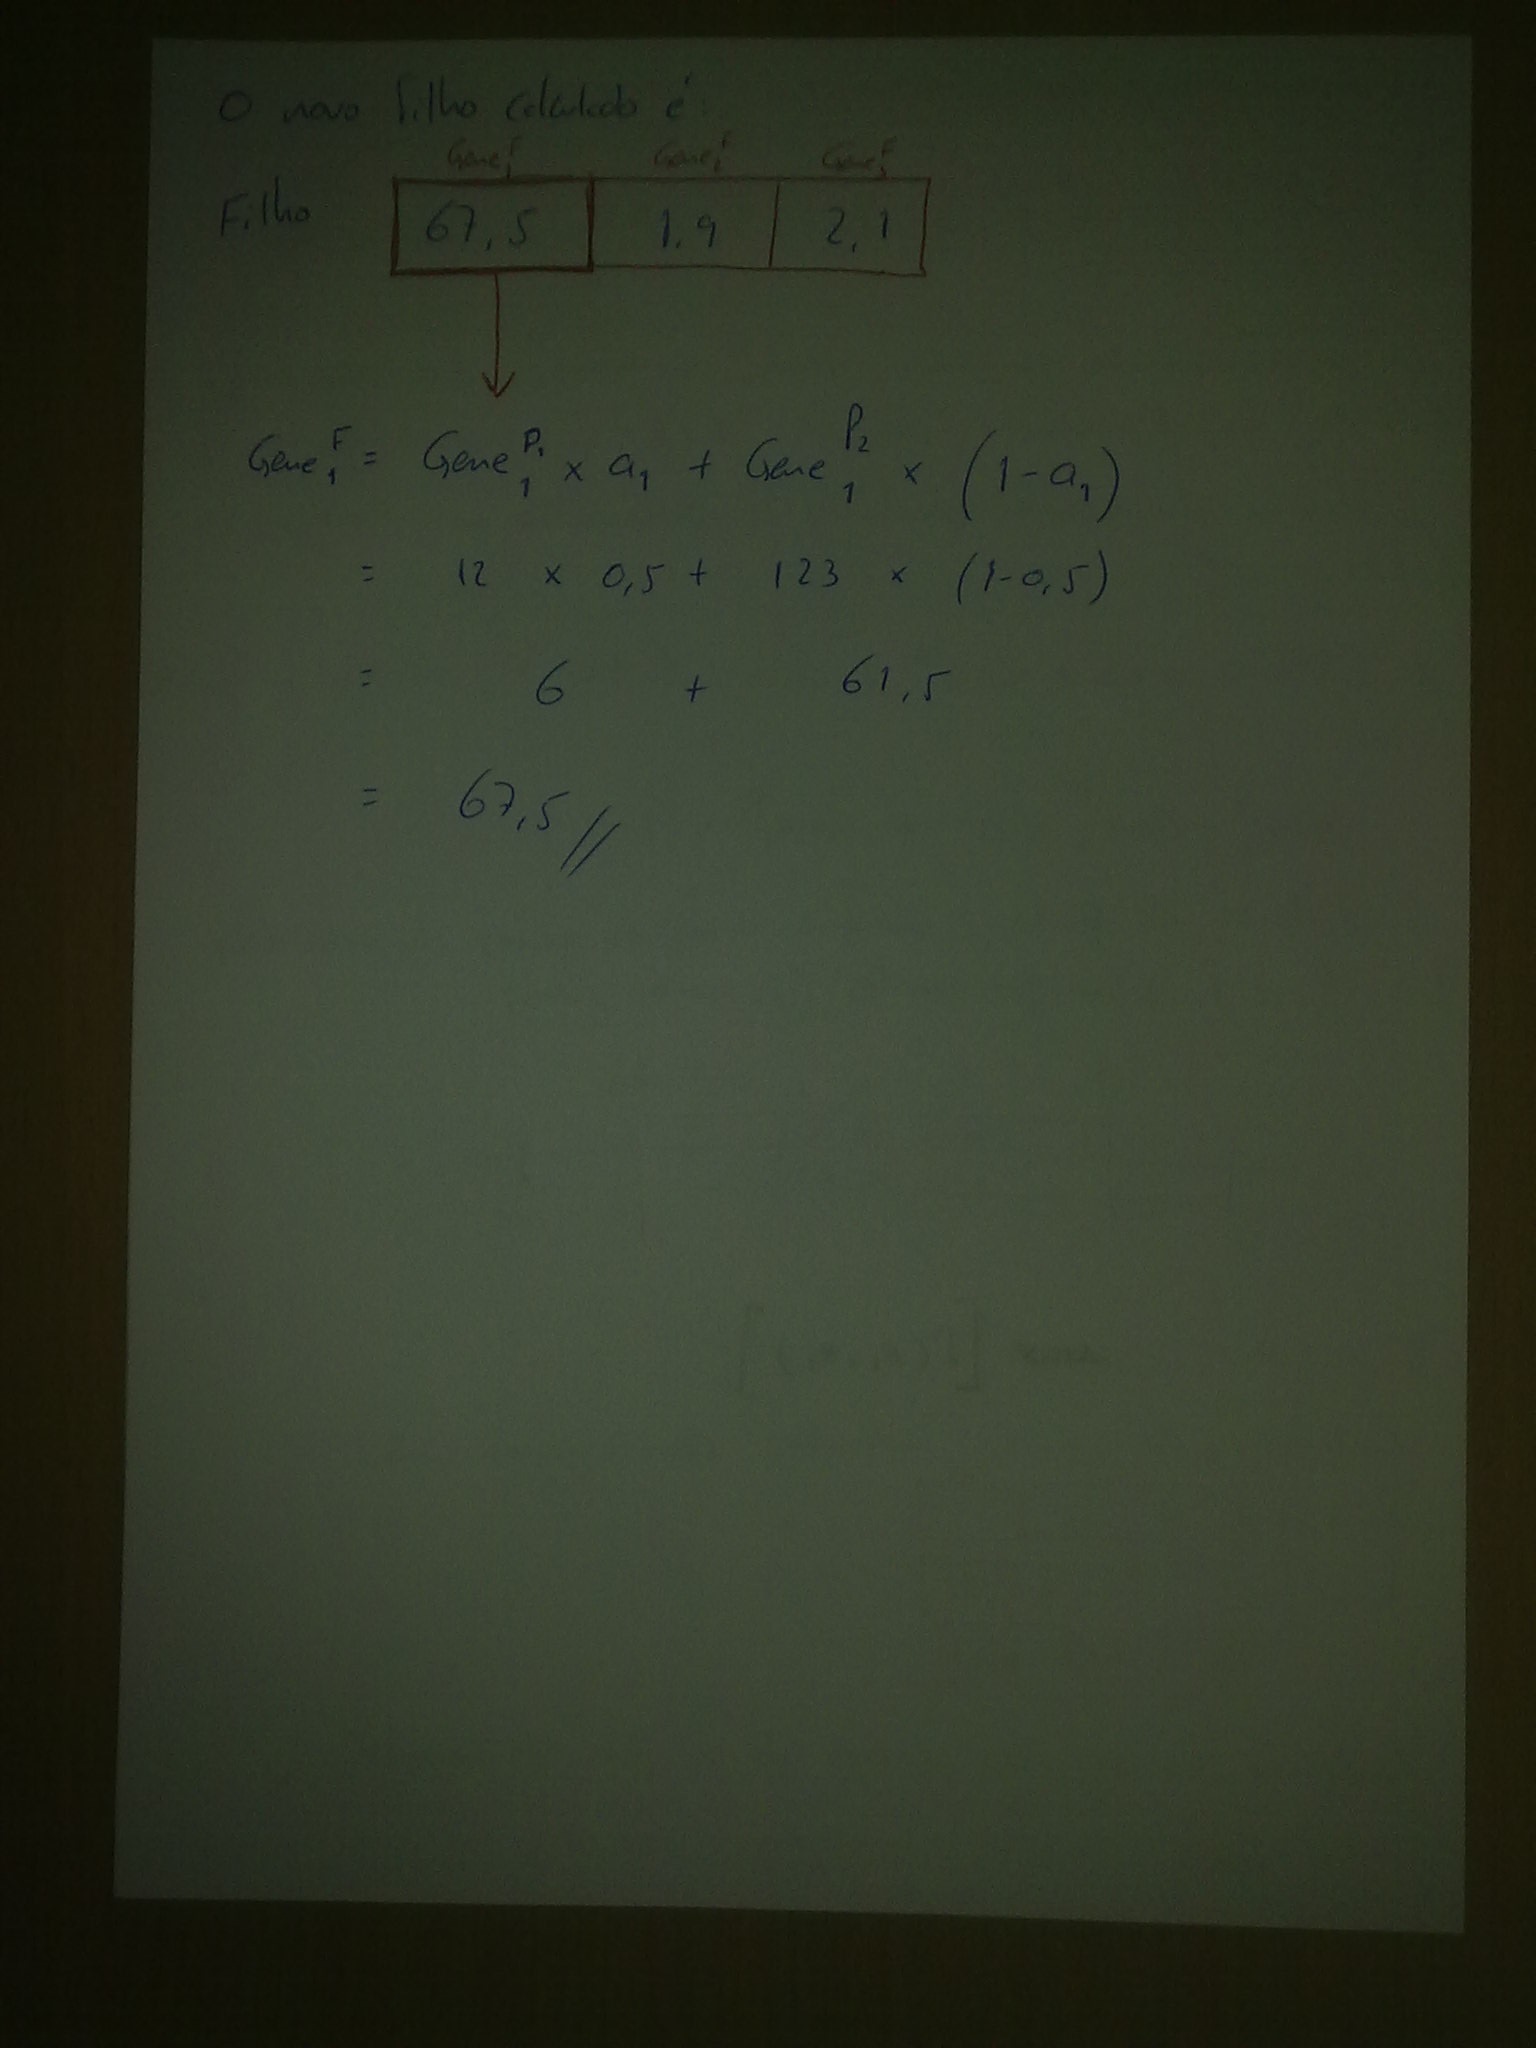 O novo filho calculado é:
Gene₁ᶠ Gene₂ᶠ Gene₃ᶠ
Filho 67,5 1,9 2,1
Gene₁ᶠ = Gene₁ᴾ¹ × a₁ + Gene₁ᴾ² × (1-a₁)
= 12 × 0,5 + 123 × (1-0,5)
= 6 + 61,5
= 67,5 //